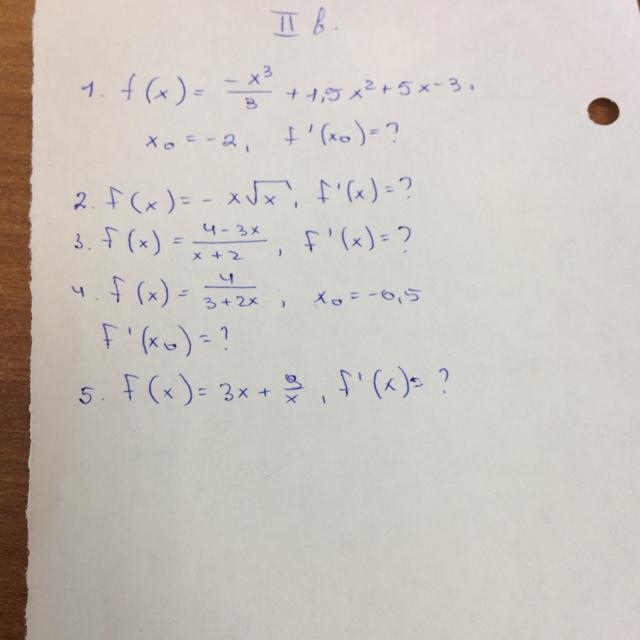 II в.
1. f(x) = -x³/3 + 1,5x² + 5x - 3,
x₀ = -2, f'(x₀) = ?
2. f(x) = - x√x, f'(x) = ?
3. f(x) = (4-3x)/(x+2), f'(x) = ?
4. f(x) = 4/(3+2x), x₀ = -0,5
f'(x₀) = ?
5. f(x) = 3x + 9/x, f'(x) = ?